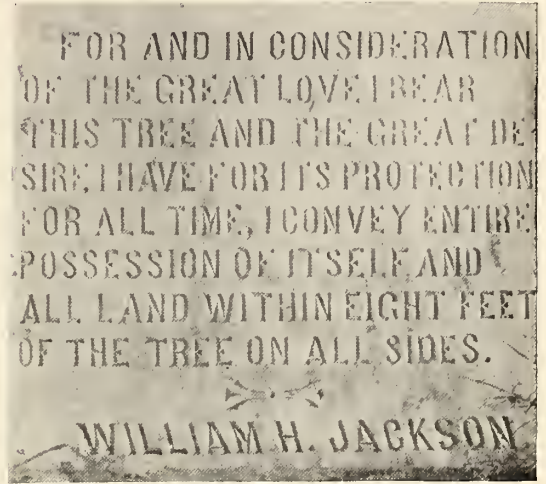 FOR AND IN CONSIDERATION
OF THE GREAT LOVE I BEAR
THIS TREE AND THE GREAT DE
SIRE I HAVE FOR ITS PROTECTION
FOR ALL TIME, I CONVEY ENTIRE
POSSESSION OF ITSELF AND
ALL LAND WITHIN EIGHT FEET
OF THE TREE ON ALL SIDES.
WILLIAM H. JACKSON